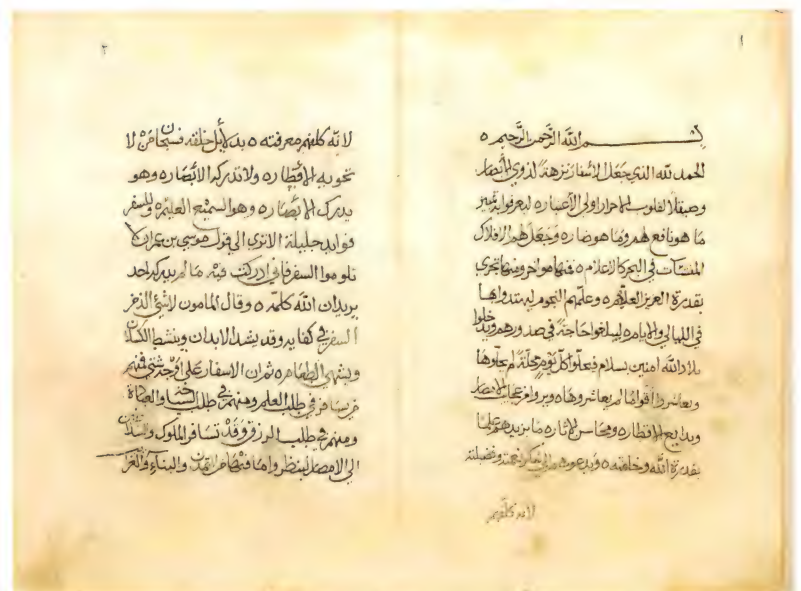 ١
بسم الله الرَّحمن الرَّحيم ه
الحمد لله الذي جَعَل الأسفار نزهةً لذوي الأبصار
وصيقلاً لقلوب الاحرار اولي الأعتبار ه ليعرفوا بتمييز
ما هو نافع لهم ومَا هو ضار ه وجَعَل لهم الافلاك
المنشآت في البحر كالاعلام ه فمنها مواخر ومنها تجري
بقدرة العزيز العلام ه وعلمهم النجوم ليهتدوا بها
في الليالي والايام ه ليبلغوا حاجةً في صدورهم ويدخلوا
بلاد الله امنين بسلام فيحلوا كل يوم محلة لم يحلوها
ويعاشروا أقوامًا لم يعاشروها ه ويروا من عجايب الامصار
وبدايع الاقطار ه ومحاسن الاثار ه ما يزيدهم علمًا
بقدرة الله وخلقته ه ويدعوهم الي شكر نعمته وفضيلته
لانه كلفهم
٢
لانه كلفهم معرفته ه بدلايل خلقته فسبحان من لا
تحويه الاقطار ه ولا تدركه الابصار ه وهو
يدرك الابصار ه وهو السميع العليم ه وللسفر
فوايد جليلة الا تري الي قول موسي بن عمران لا
تلوموا السفر فاني ادركت فيه ما لم يدركه احد
يريد ان الله كلمه ه وقال المامون لا شي الذ من
السفر في كفايه وقد يشد الابدان وينشط الكسلان
ويشهي الطعام ه ثم ان الاسفار على اوجه شتي فمنهم
من يسافر في طلب العلم ومنهم في طلب
ومنهم في طلب الرزق وقد تسافر الملوك
الي الامصار لينظروا ما فيها من التمدن والبناء